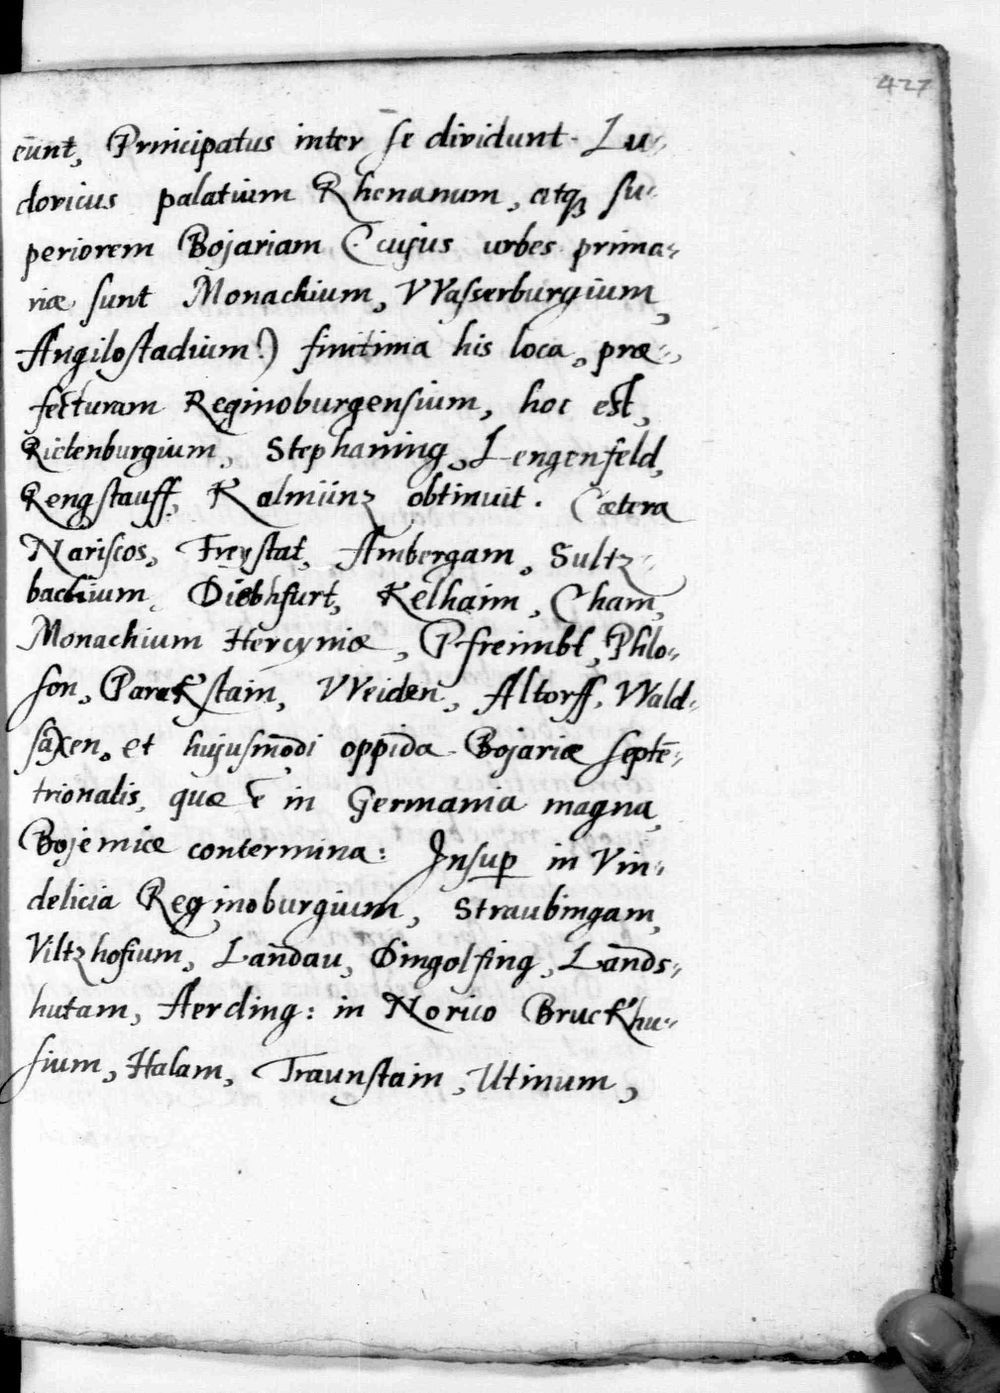 427
eūnt, Principatus inter se dividunt. Lu-
dovicus palatium Rhenanum, atqꝫ su-
periorem Bojariam (cujus urbes prima-
riæ sunt Monachium, VVasserburgium,
Angilostadium.) finitima his loca, præ-
fecturam Reginoburgensium, hoc est,
Rietenburgium, Stephaning, Lengenfeld,
Rengstauff, Kalmünz obtinuit. Cætera
Nariscos, Freystat, Ambergam, Sultz-
bachium, Diethfurt, Kelhaim, Cham,
Monachium Hercyniæ, Pfreimbt, Philo-
son, Parckstain, VVeiden, Altorff, VVald-
saxen, et hujusmodi oppida Bojariæ septē-
trionalis, quæ ē in Germania magna,
Bojemiæ contermina: Insuꝑ in Vin-
delicia Reginoburgium, Straubingam,
Viltzhofium, Landau, Dingolfing, Lands-
hutam, Aerding: in Norico Bruckhu-
sium, Halam, Traunstain, Utinum,